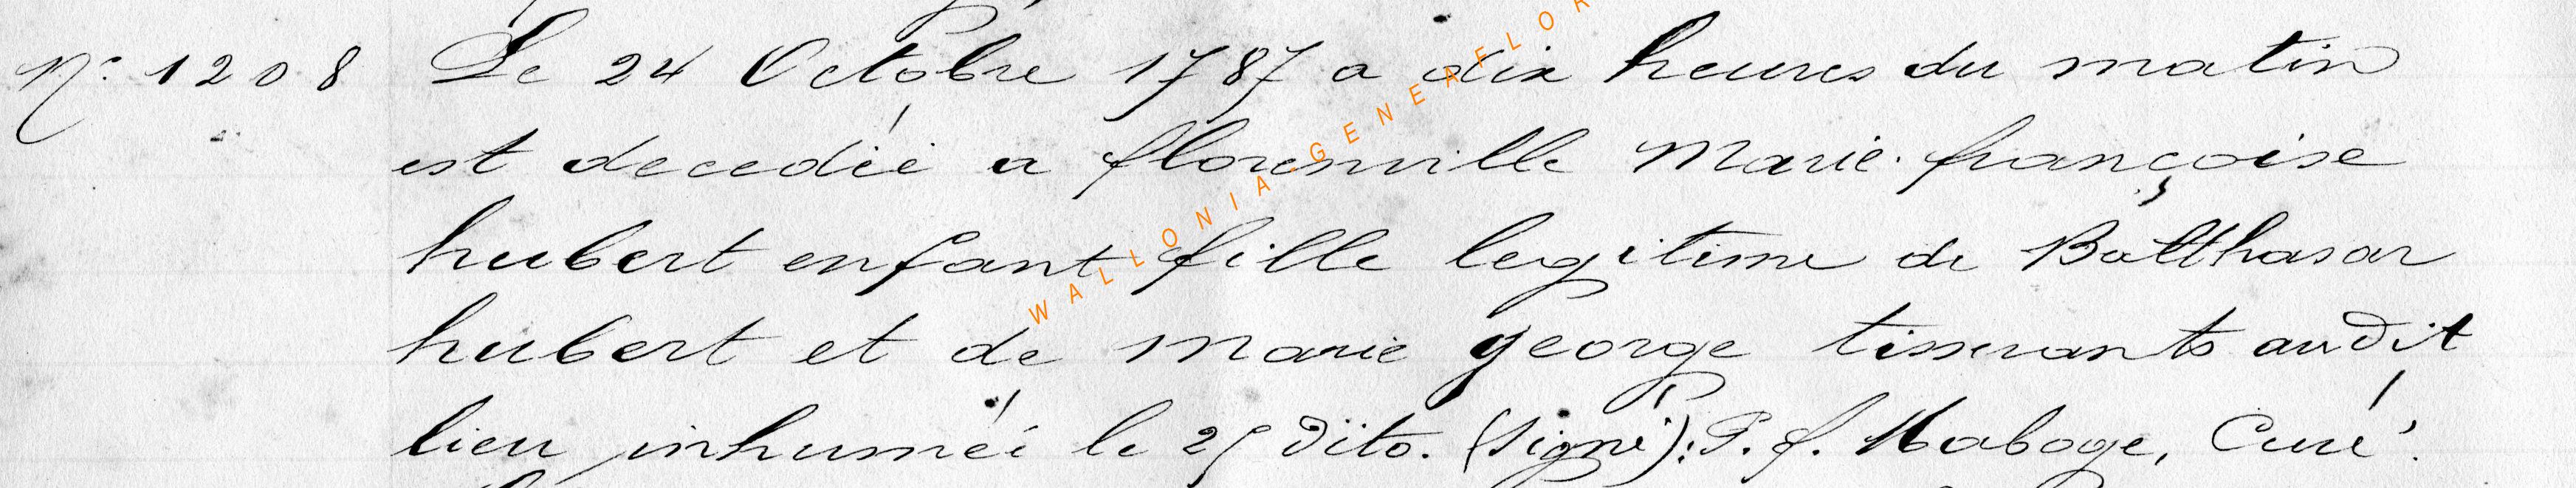 N° 1208 Le 24 Octobre 1787 a dix heures du matin
est decedéé a florenville Marie françoise
hubert enfant fille legitime de Balthasar
hubert et de marie george tisserants audit
lieu inhuméé le 25 dito. (signé): P. f. Maboge, Curé.
WALLONIA-GENEAFLOR